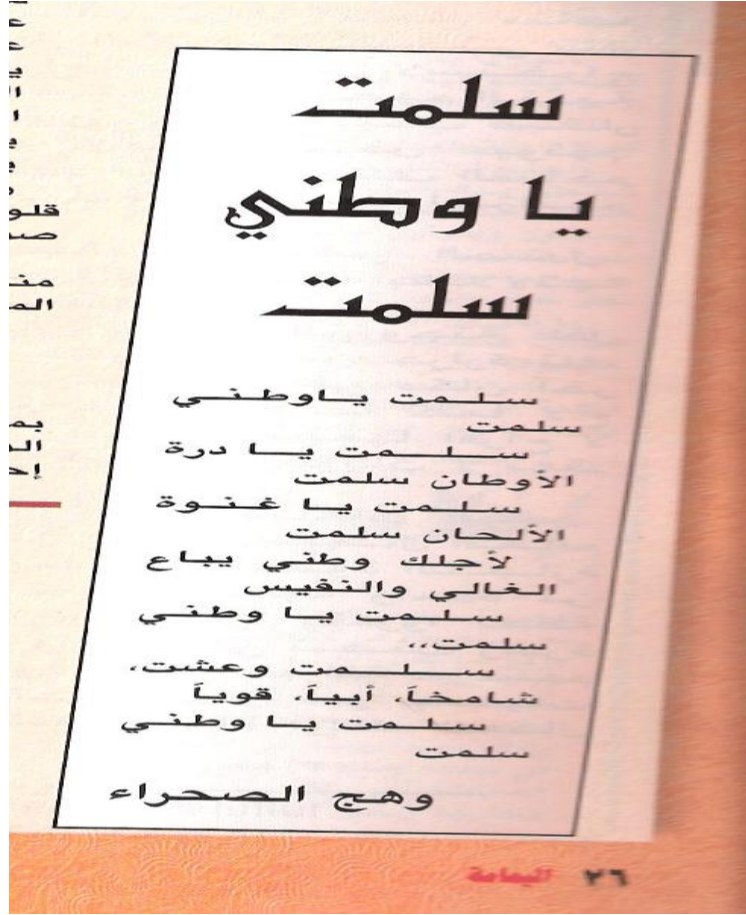 سلمت
يا وطني
سلمت
سلمت ياوطني
سلمت
سلمت يا درة
الأوطان سلمت
سلمت يا غنوة
الألحان سلمت
لأجلك وطني يباع
الغالي والنفيس
سلمت يا وطني
سلمت،،
سلمت وعشت،
شامخاً، أبياً، قوياً
سلمت يا وطني
سلمت
وهج الصحراء
٢٦ اليمامة